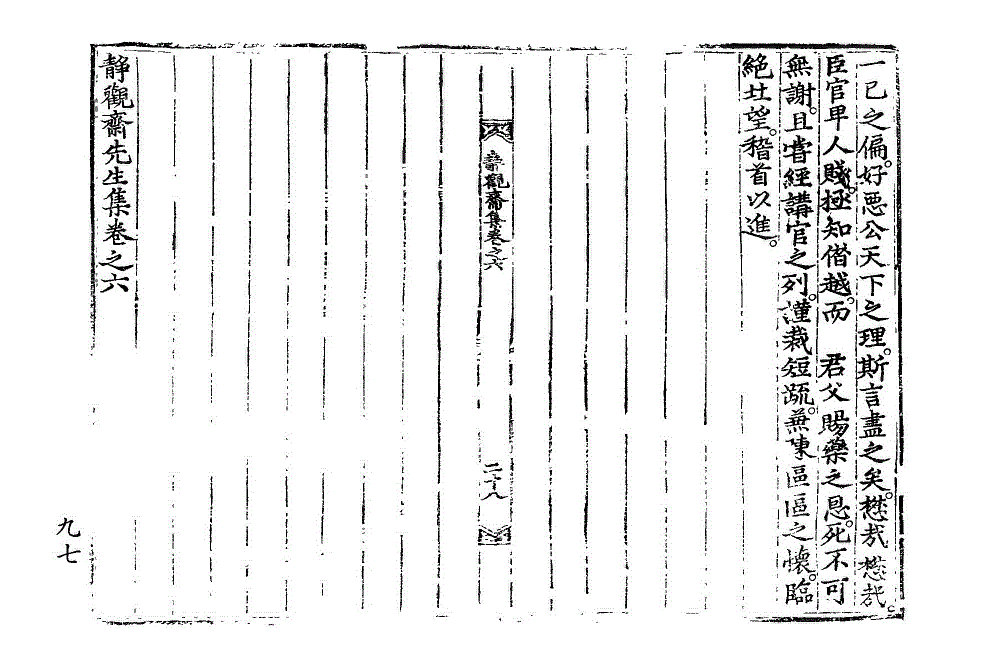 一已之偏。好惡公天下之理。斯言盡之矣。懋哉懋哉。
臣官卑人賤。極知僭越。而　君父賜藥之恩。死不可
無謝。且嘗經講官之列。謹裁短疏。兼陳區區之懷。臨
絶壯望。稽首以進。
靜觀齋集卷之六
二十八
靜觀齋先生集卷之六
九七